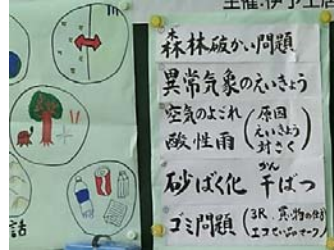 森林破かい問題
異常気象のえいきょう
空気のよごれ
酸性雨
(原因
えいきょう
対さく)
砂ばく化 干ばつ
かん
ゴミ問題
(3R、買い物の仕方
エコでい品マーク)
話